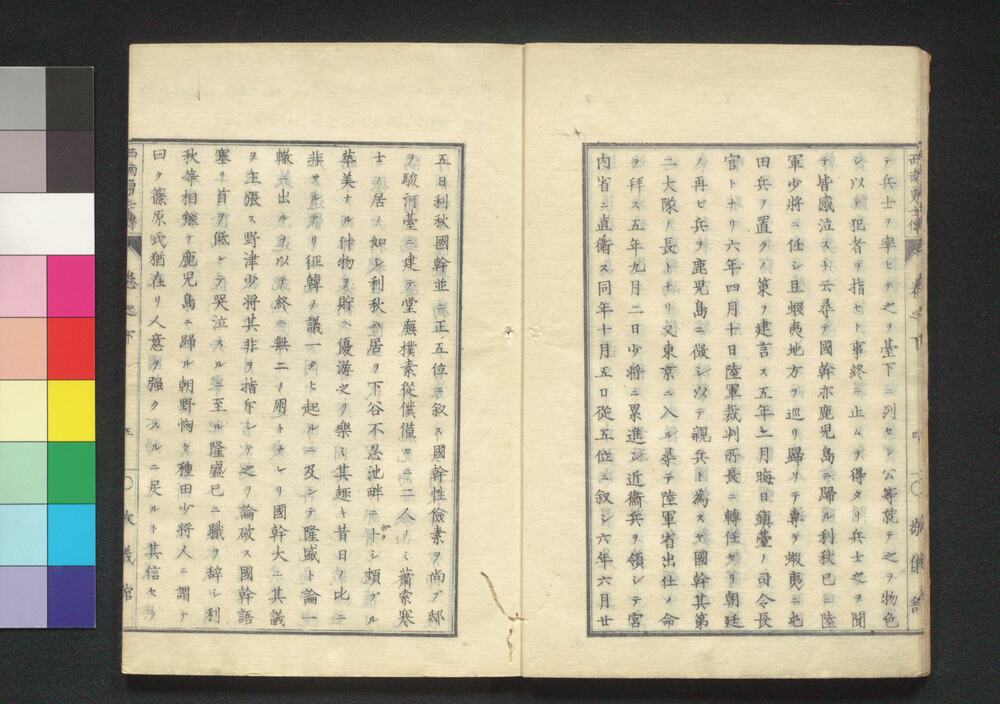 テ兵士ヲ率ヒテ之ヲ臺下ニ列セシ公等就テ之ヲ物色
シ以テ犯者ヲ指セト事終ニ止ムヲ得タリ兵士之ヲ聞
テ皆感泣スト云尋テ國幹亦鹿児島ニ歸ル利秋已ニ陸
軍少将ニ任シ且蝦夷地方ヲ巡リ歸リテ専ラ蝦夷ニ屯
田兵ヲ置クノ策ヲ建言ス五年七月晦日鎮臺ノ司令長
官トナリ六年四月十日陸軍裁判所長ニ轉任セリ朝廷
ノ再ヒ兵ヲ鹿児島ニ徴シ以テ親兵ト為スヤ國幹其第
二大隊ノ長トナリ又東京ニ入ル尋テ陸軍省出仕ノ命
ヲ拜ス五年九月二日少将ニ累進シ近衛兵ヲ領シテ宮
内省ニ直衛ス同年十月五日從五位ニ叙シ六年六月廿
五日利秋國幹並ニ正五位ニ叙ス國幹性儉素ヲ尚ブ邸
ヲ駿河臺ニ建テ堂廡樸素從僕僅カニ二人ノミ蕭索寒
士ノ居ノ如シ利秋ハ居ヲ下谷不忍池畔ニトシ頗ブル
華美ナル什物ヲ貯ヘ優游之ヲ樂ミ其趣キ昔日ノ比ニ
非サルナリ征韓ヲ議一タヒ起ルニ及ンテ隆盛ト論一
轍ニ出ルヲ以テ終ニ無二ノ朋トナレリ國幹大ニ其議
ヲ主張ス野津少将其非ヲ指斥シテ之ヲ論破ス國幹語
塞リ首ヲ低レテ哭泣スルニ至ル隆盛已ニ職ヲ辞シ利
秋等相継テ鹿児島ニ歸ル朝野恟々種田少将人ニ謂テ
曰ク篠原氏猶在リ人意ヲ强クスルニ足ルト其信セラ
西南勇士傳
巻之下
五